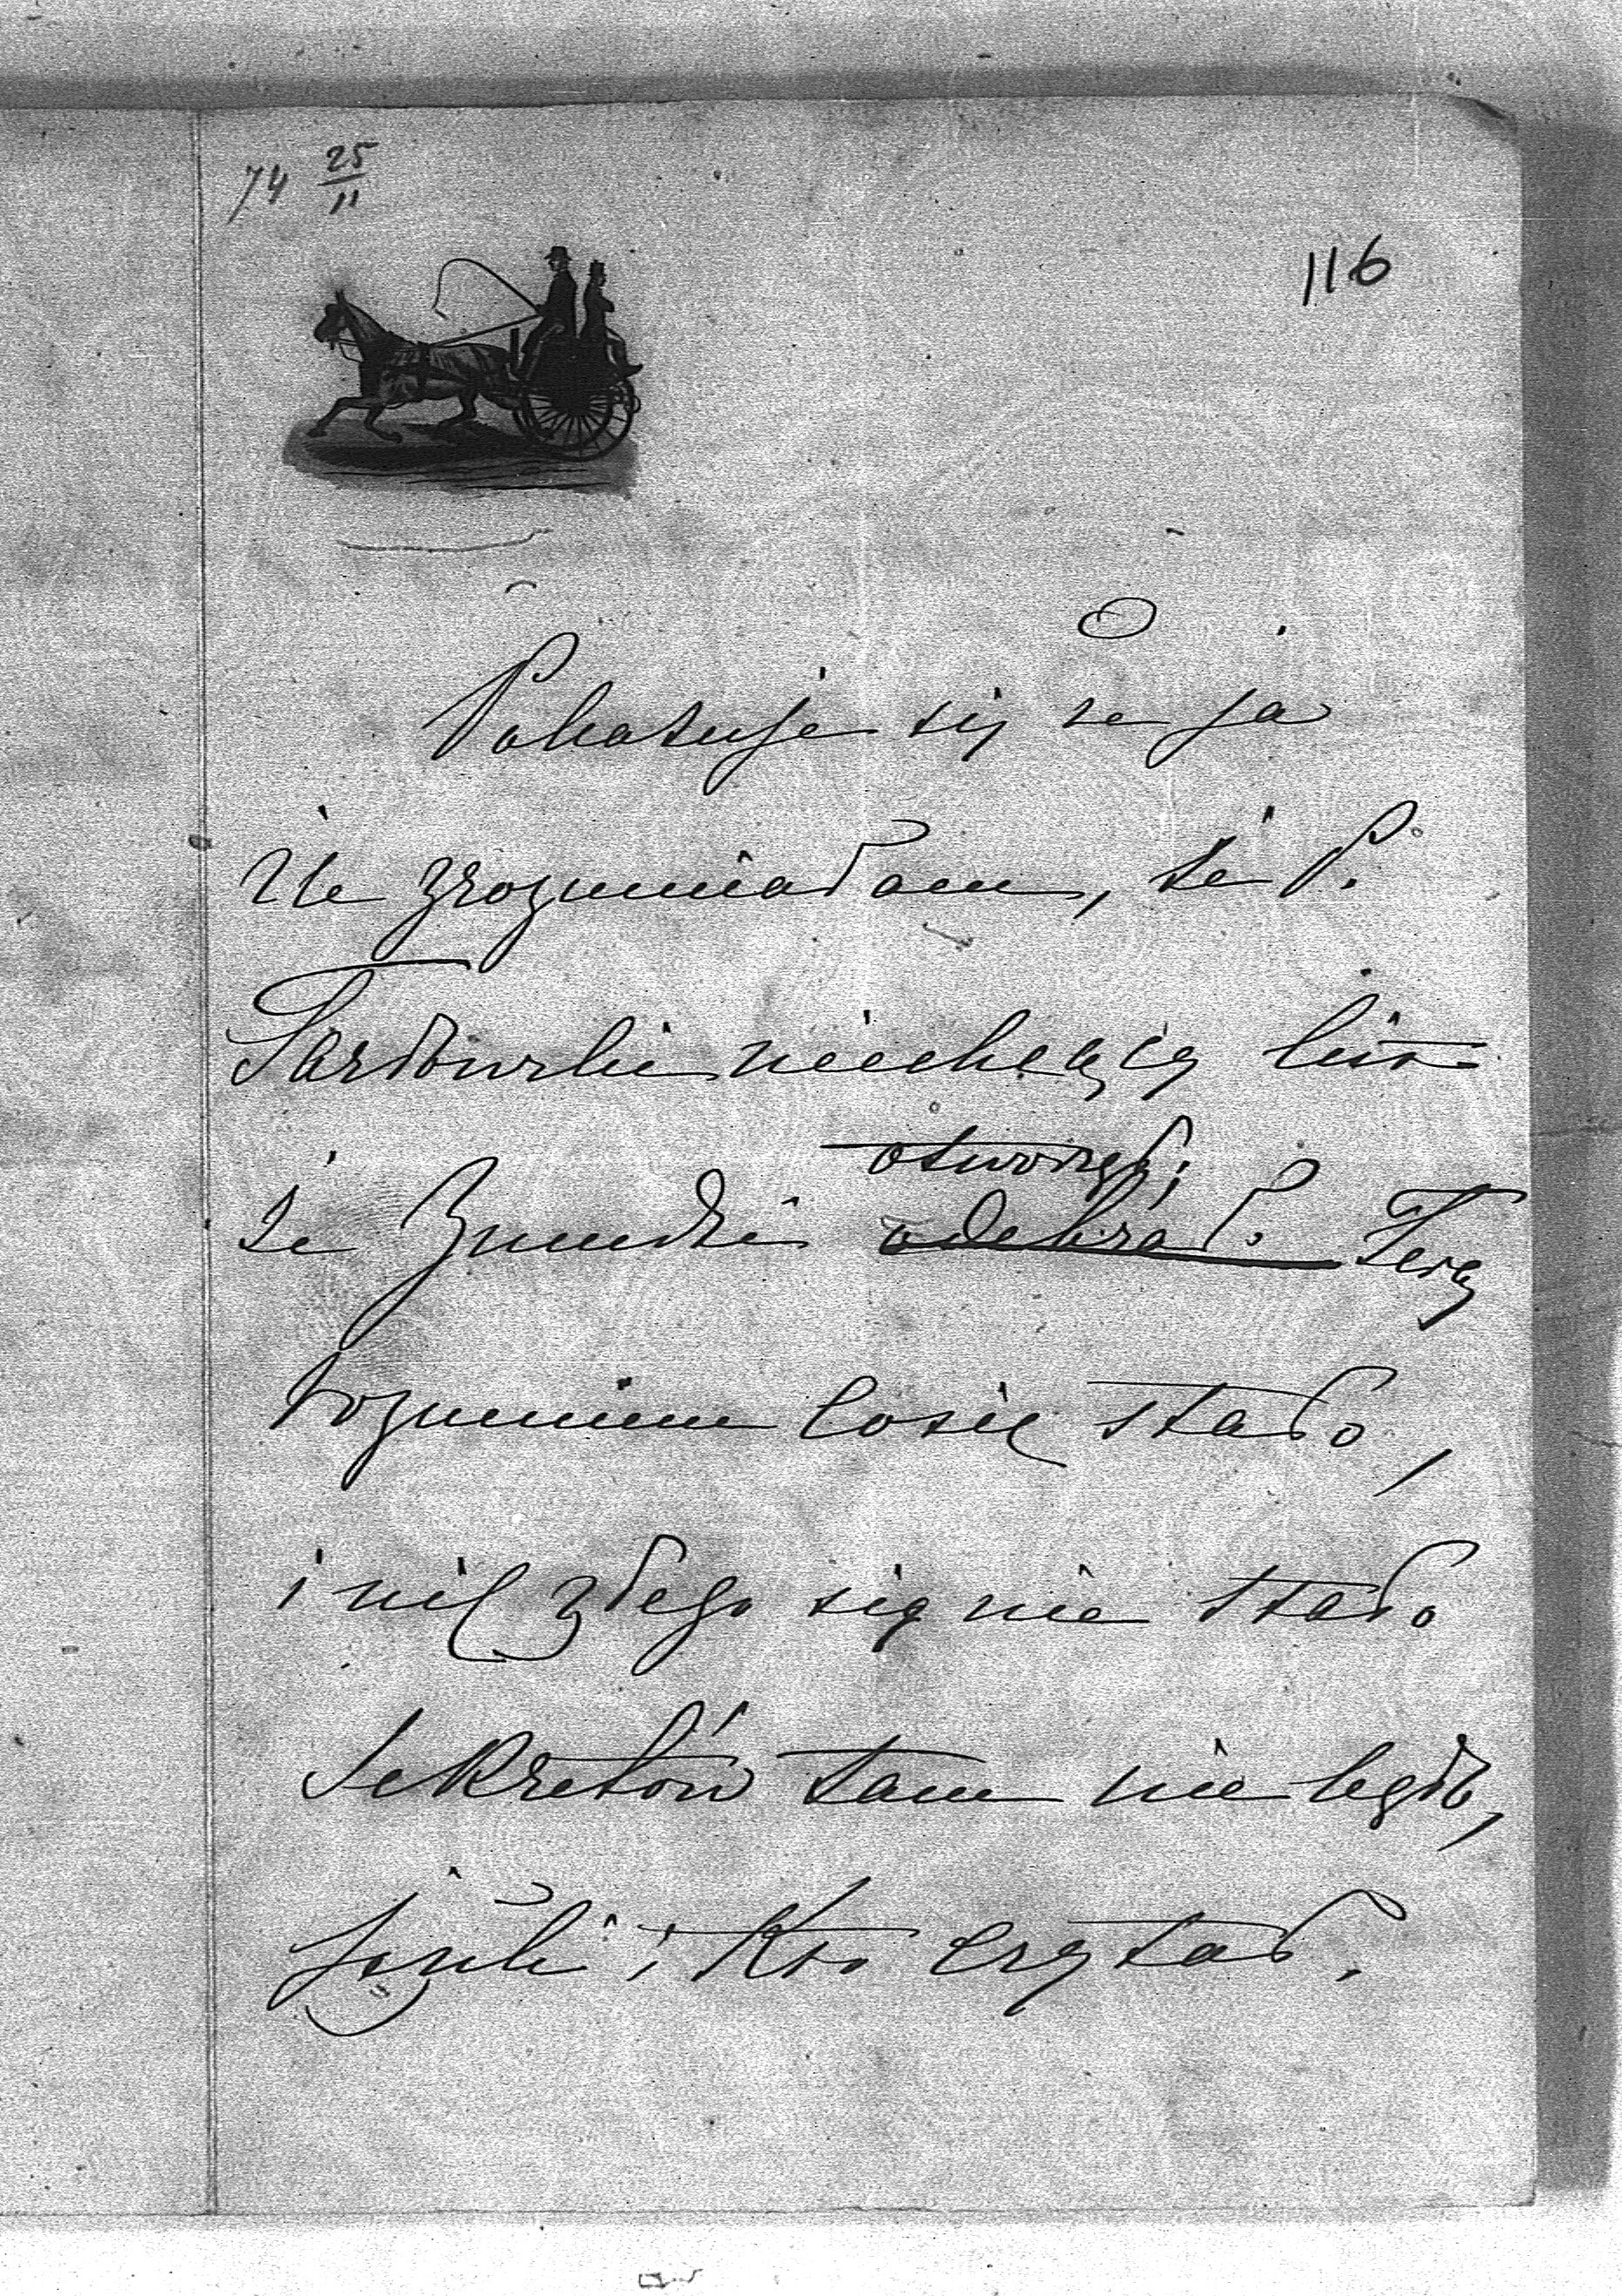 74 25/11
116
Pokazuje się że ja
źle zrozumiałam, że P.
niechcący list
że Żmudzki
otworzył;
odebrał. Teraz
rozumiem co się stało,
i nic złego się nie stało
Sekretów tam nie było,
jeżeli i kto czytał.